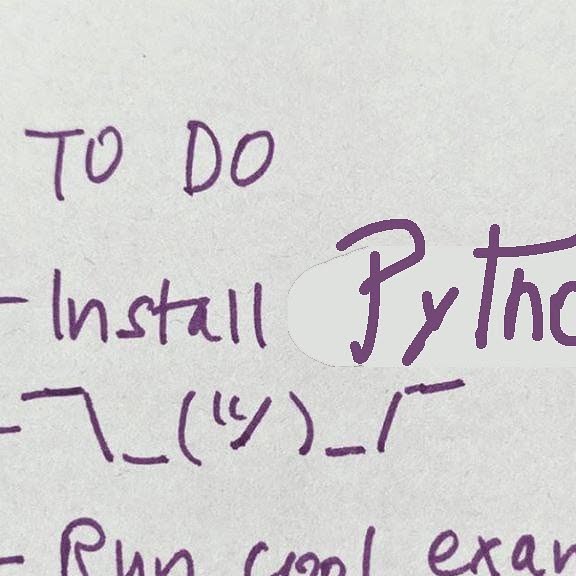 TO DO
- Install Pytho
- ¯\_(ツ)_/¯
- Run cool exam